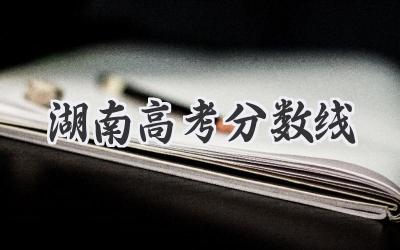 湖南高考分数线